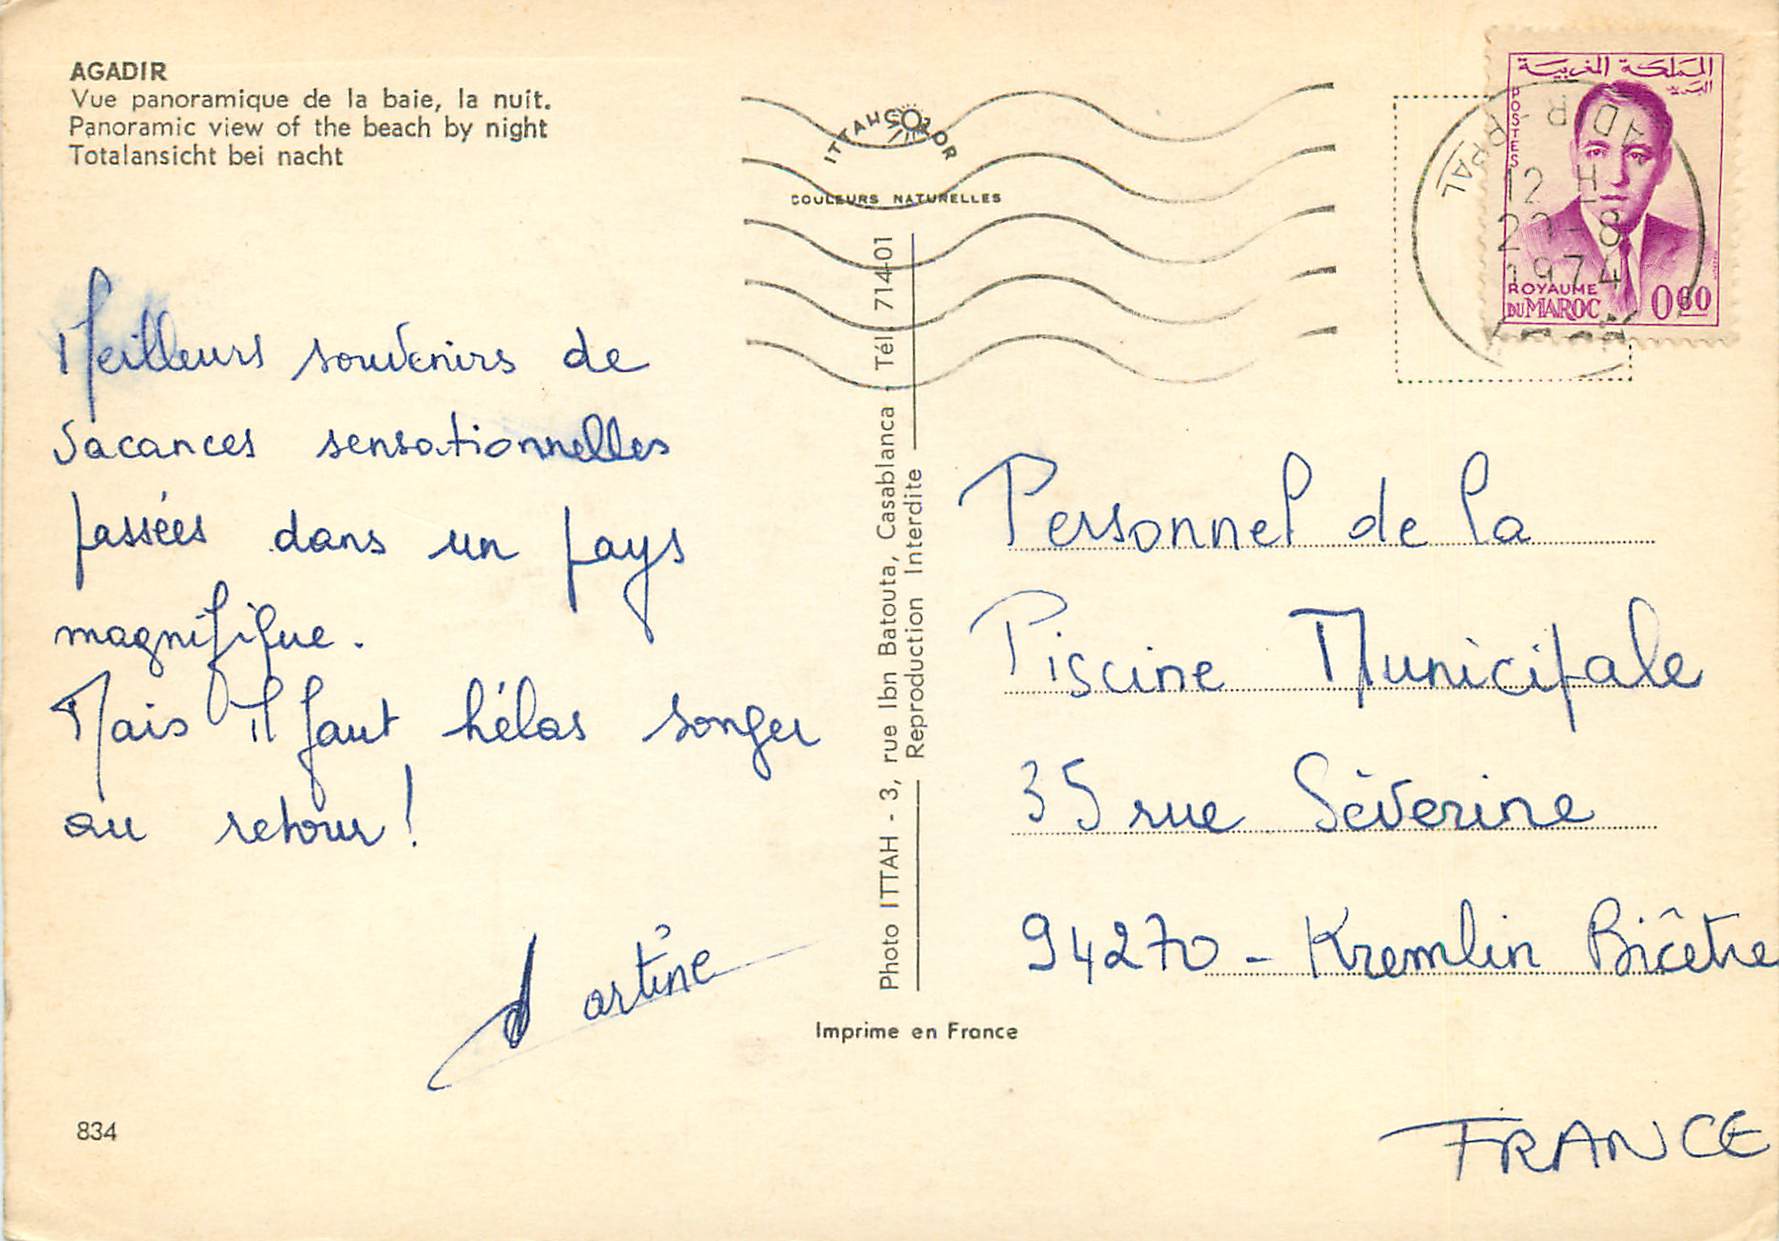 AGADIR
Vue panoramique de la baie, la nuit.
Panoramic view of the beach by night
Totalansicht bei nacht
ITTAHCOLOR
COULEURS NATURELLES
المملكة المغربية
البريد
POSTES
ROYAUME
DU MAROC
0,60
12 H
8
1974
Meilleurs souvenirs de
vacances sensationnelles
passées dans un pays
magnifique.
Mais il faut hélas songer
au retour!
Martine
Photo ITTAH - 3, rue Ibn Batouta, Casablanca - Tél. 714-01
Reproduction Interdite
Personnel de la
Piscine Municipale
35 rue Séverine
94270 - Kremlin Bicêtre
FRANCE
Imprime en France
834